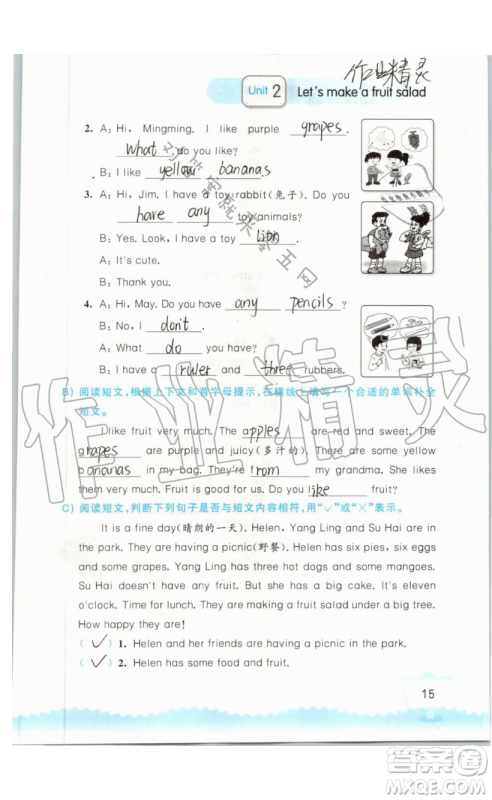 作业精灵
Unit 2
Let's make a fruit salad
2. A: Hi, Mingming. I like purple grapes.
What do you like?
B: I like yellow bananas
3. A: Hi, Jim. I have a toy rabbit(兔子). Do you
have any toy animals?
B: Yes. Look, I have a toy lion.
A: It's cute.
B: Thank you.
4. A: Hi, May. Do you have any pencils?
B: No, I don't.
A: What do you have?
B: I have a ruler and three rubbers.
B) 阅读短文,根据上下文和首字母提示,在横线上填写一个合适的单词补全
短文。
I like fruit very much. The apples are red and sweet. The
grapes are purple and juicy(多汁的). There are some yellow
bananas in my bag. They're from my grandma. She
likes fruit very much. Fruit is good for us. Do you like fruit?
C) 阅读短文,判断下列句子是否与短文内容相符,用“✓”或“×”表示。
It is a fine day(晴朗的一天). Helen, Yang Ling and Su Hai are
in the park. They are having a picnic(野餐). Helen has six pies, six eggs
and some grapes. Yang Ling has three hot dogs and some mangoes.
Su Hai doesn't have any fruit. But she has a big cake. It's eleven
o'clock. Time for lunch. They are making a fruit salad under a big tree.
How happy they are!
( ✓ ) 1. Helen and her friends are having a picnic in the park.
( ✓ ) 2. Helen has some food and fruit.
15
作业精灵
对答案就来零五网
答案圈
MXQE.COM